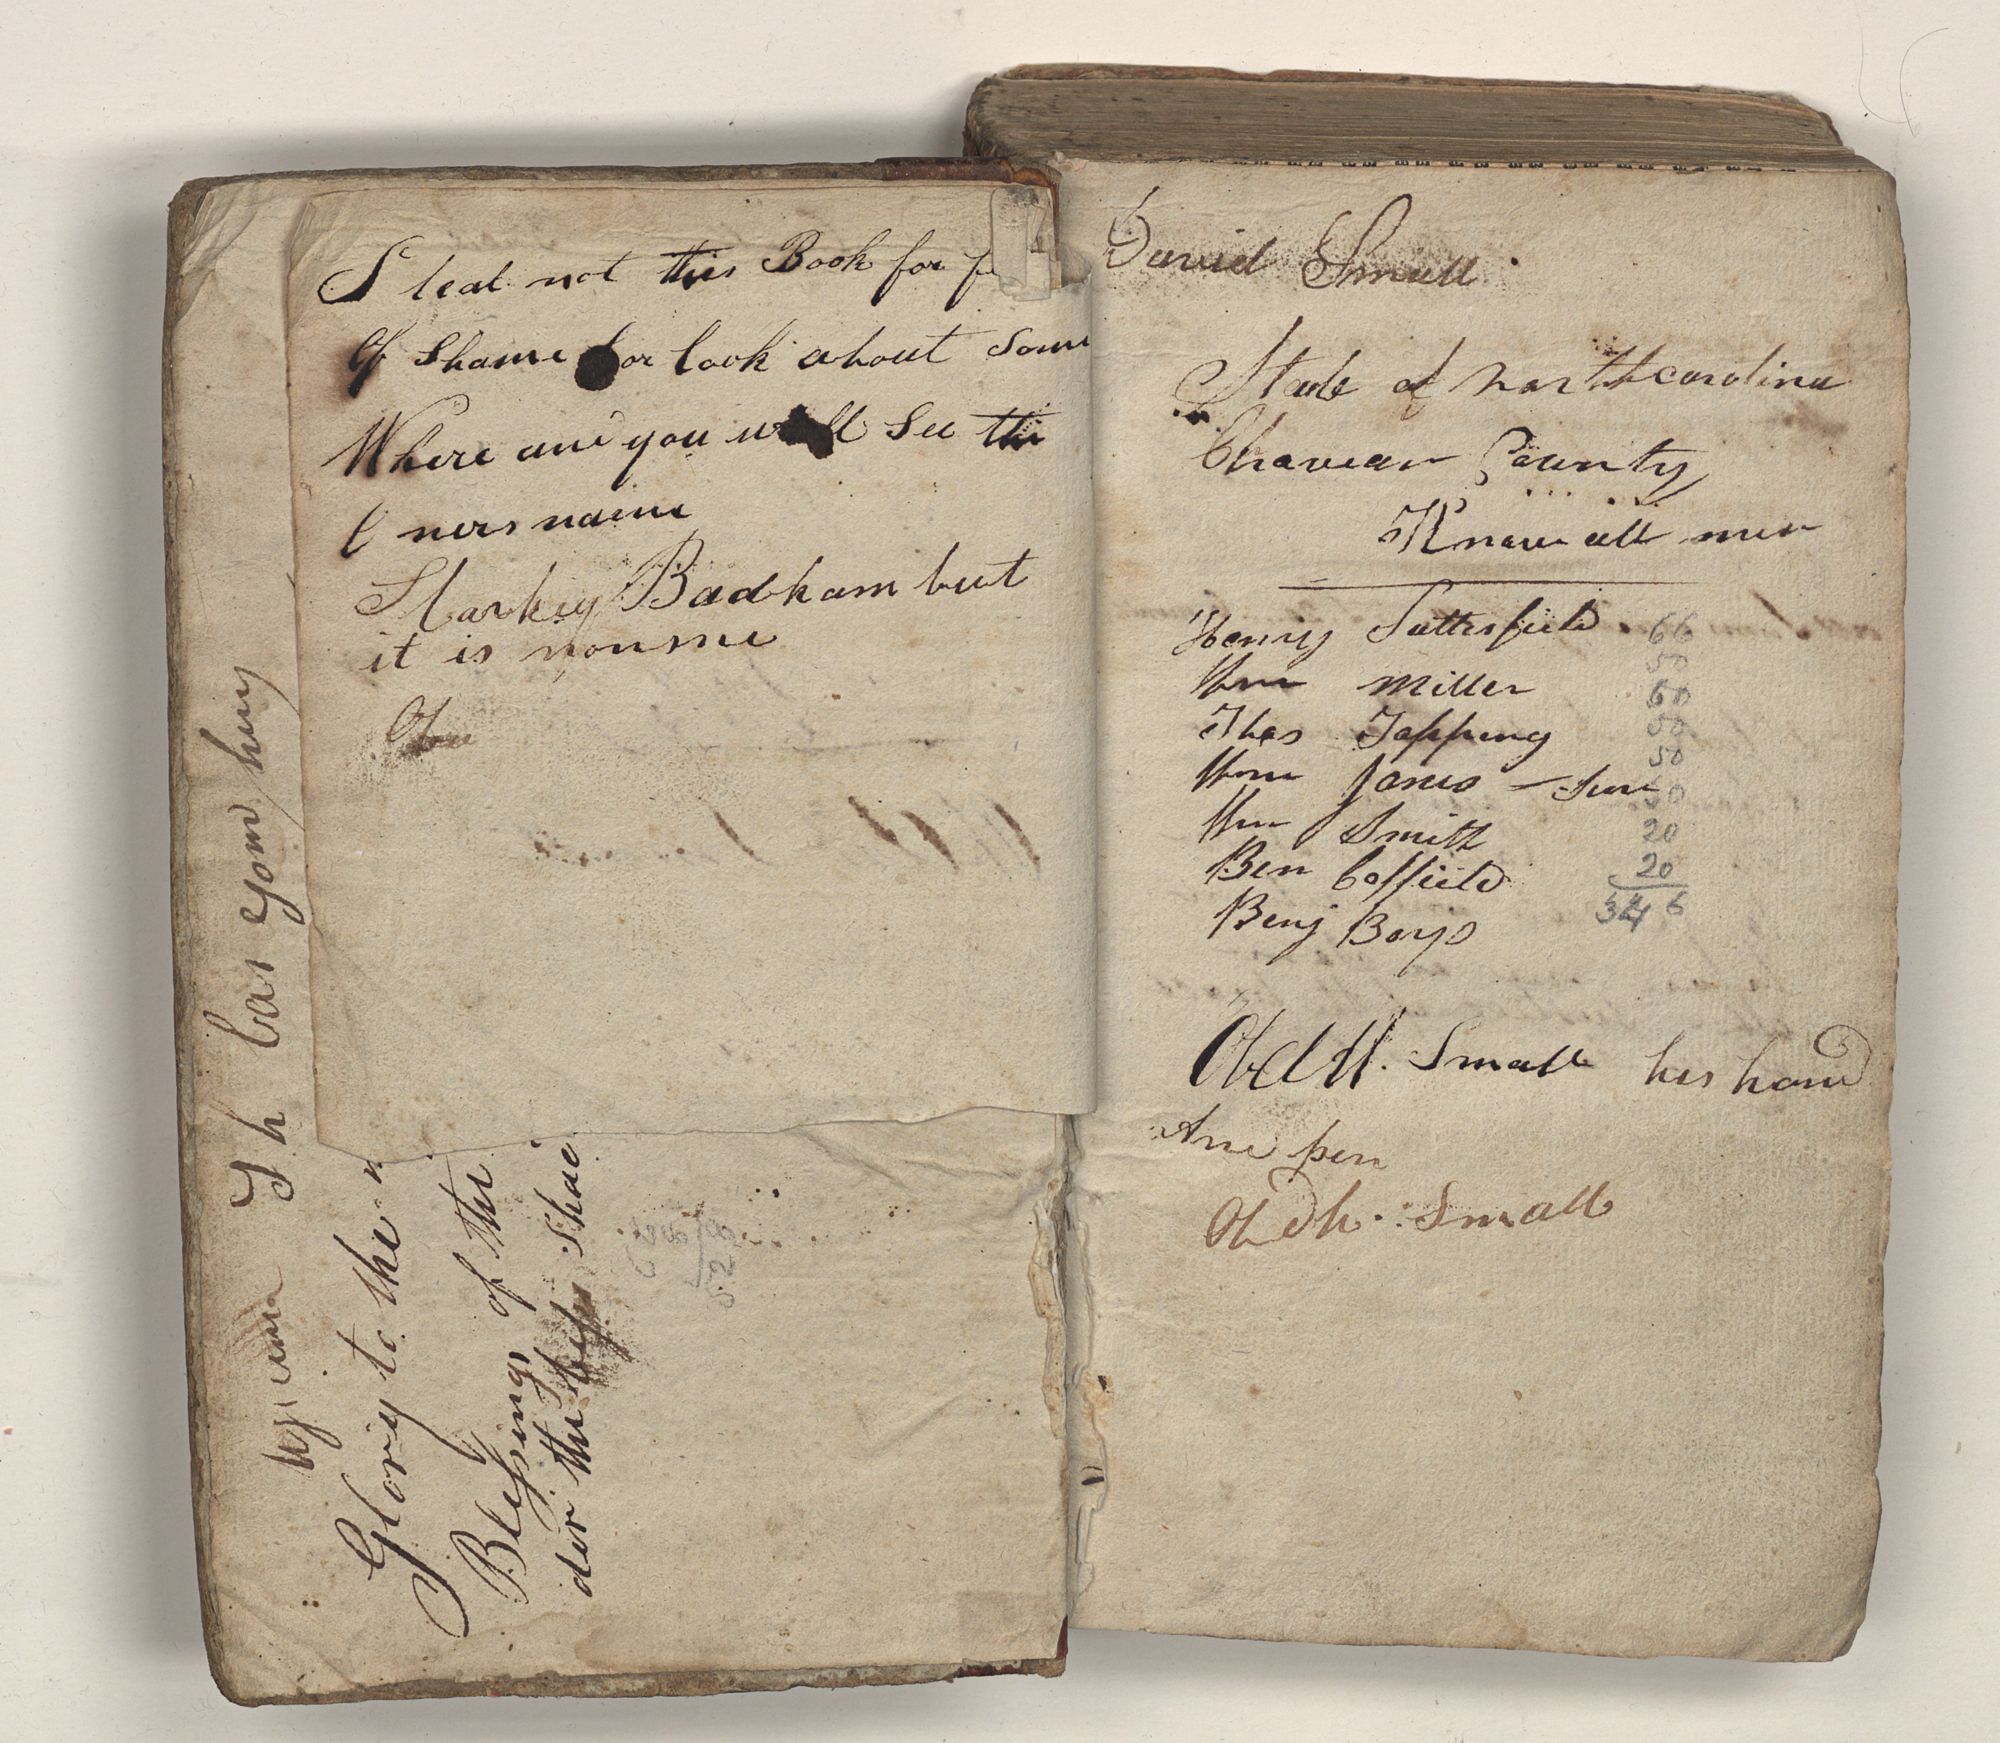 Steal not this Book for
Of Shame for look about Some
Where and you will See the
Oners name
Starkey Badham but
it is nonsne
Glory to the
Blessings of the
der the Shad
David Small
State of northcarolina
Chowan County
Know all men
Henry Satterfield
Wm Miller
Thos Topping
Wm Jones - Senr
Wm Smith
Ben Coffield
Benj Boys
66
50
60
50
50
50
20
20
346
Obed M. Small his hand
Ane pen
Obdh. Small